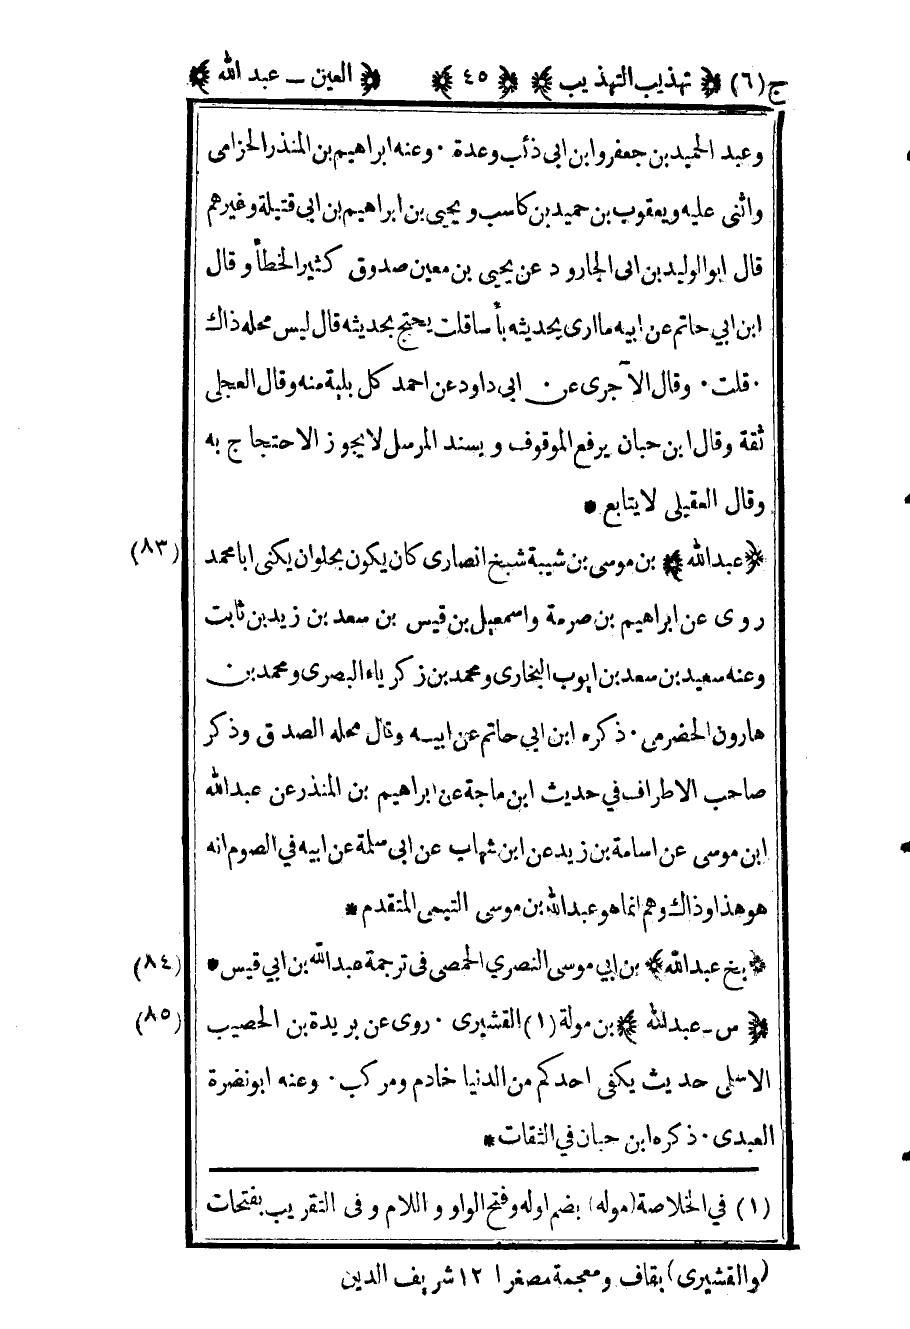 ج (٦) ﴿ تهذيب التهذيب ﴾ ﴿ ٤٥ ﴾ ﴿ العين ــ عبد الله ﴾
وعبد الحميد بن جعفر وابن ابى ذئب وعدة ٠ وعنه ابراهيم بن المنذر الحزامى
واثنى عليه ويعقوب بن حميد بن كاسب و يحيى بن ابراهيم بن ابى قتيلة وغيرهم
قال ابو الوليد بن ابى الجارود عن يحيى بن معين صدوق كثير الخطأ وقال
ابن ابي حاتم عن ابيه ما ارى بحديثه بأسا قلت يحتج بحديثه قال ليس محله ذاك
٠ قلت ٠ وقال الآجرى عن ابى داود عن احمد كل بلية منه وقال العجلى
ثقة وقال ابن حبان يرفع الموقوف و يسند المرسل لا يجوز الاحتجاج به
وقال العقيلى لا يتابع *
﴿ عبد الله ﴾ بن موسى بن شيبة شيخ انصارى كان يكون بحلوان يكنى ابا محمد (٨٣)
روى عن ابراهيم بن صرمة واسمعيل بن قيس بن سعد بن زيد بن ثابت
وعنه سعيد بن سعد بن ايوب البخارى ومحمد بن زكرياء البصرى ومحمد بن
هارون الحضرمى ٠ ذكره ابن ابي حاتم عن ابيه وقال محله الصدق وذكر
صاحب الاطراف في حديث ابن ماجة عن ابراهيم بن المنذر عن عبد الله
ابن موسى عن اسامة بن زيد عن ابن شهاب عن ابى سلمة عن ابيه في الصوم انه
هو هذا وذاك وهم انما هو عبد الله بن موسى التيمى المتقدم *
﴿ بخ عبد الله ﴾ بن ابي موسى النصري الحمصى فى ترجمة عبد الله بن ابي قيس * (٨٤)
﴿ س ــ عبد الله ﴾ بن مولة (١) القشيرى ٠ روى عن بريدة بن الحصيب (٨٥)
الاسلمى حديث يكفى احدكم من الدنيا خادم ومركب ٠ وعنه ابو نضرة
العبدى ٠ ذكره ابن حبان في الثقات *
(١) في الخلاصة (موله) بضم اوله وفتح الواو و اللام و فى التقريب بفتحات
(والقشيرى) بقاف ومعجمة مصغرا ١٢ شريف الدين